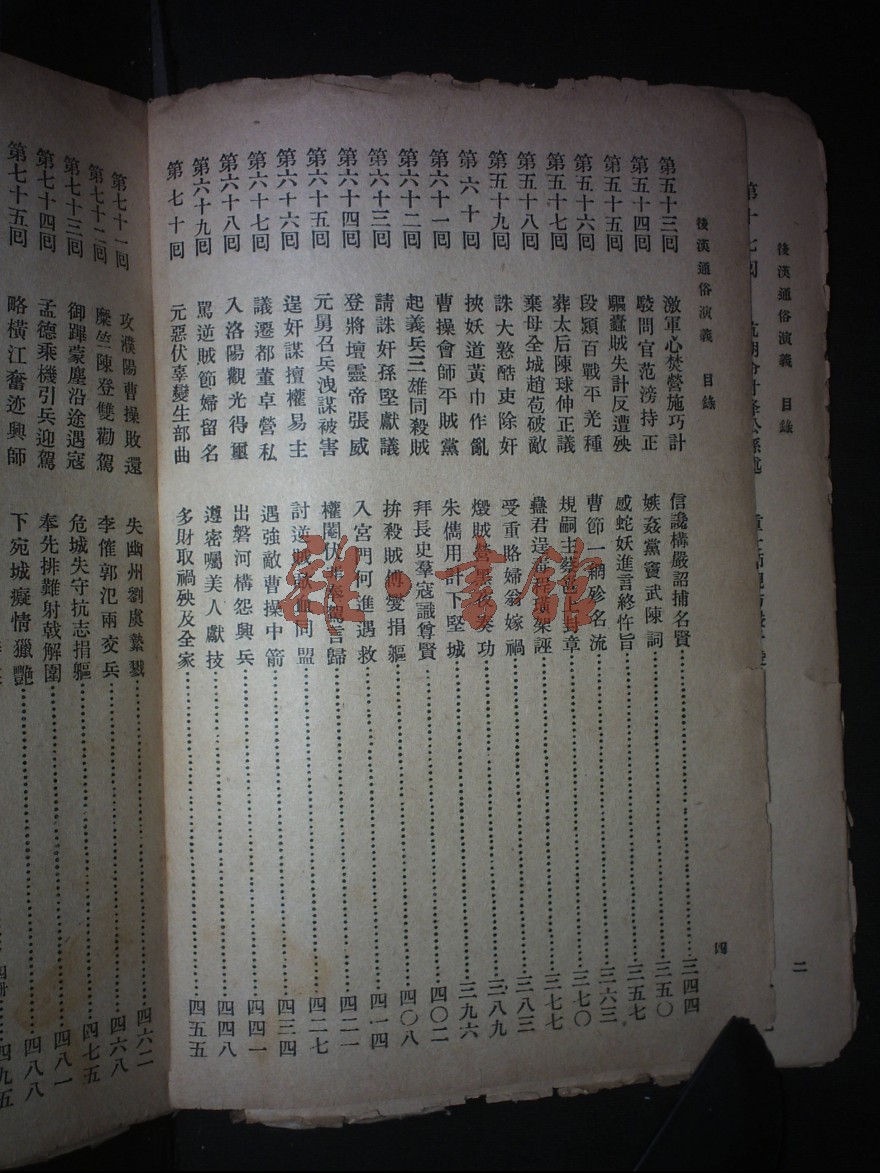 後漢通俗演義 目錄
二
後漢通俗演義 目錄
四
第五十三回 激軍心焚營施巧計 信讒構嚴詔捕名賢 三四四
第五十四回 駁問官范滂持正 嫉姦黨竇武陳詞 三五〇
第五十五回 驅蠹賊失計反遭殃 感蛇妖進言終忤旨 三五七
第五十六回 段熲百戰平羌種 曹節一網殄名流 三六三
第五十七回 葬太后陳球伸正議 規嗣主蔡邕上封章 三七〇
第五十八回 棄母全城趙苞破敵 蠱君逞毒程璜架誣 三七七
第五十九回 誅大憝酷吏除奸 受重賂婦翁嫁禍 三八三
第六十回 挾妖道黃巾作亂 燬賊營黑夜奏功 三八九
第六十一回 曹操會師平賊黨 朱儁用計下堅城 三九六
第六十二回 起義兵三雄同殺賊 拜長史羣寇識尊賢 四〇二
第六十三回 請誅奸孫堅獻議 拚殺賊傅燮捐軀 四〇八
第六十四回 登將壇靈帝張威 入宮門何進遇救 四一四
第六十五回 元舅召兵洩謀被害 權閹伏辜奉駕言歸 四二一
第六十六回 逞奸謀擅權易主 討逆賊歃血同盟 四二七
第六十七回 議遷都董卓營私 遇強敵曹操中箭 四三四
第六十八回 入洛陽觀光得璽 出磐河構怨興兵 四四一
第六十九回 罵逆賊節婦留名 遵密囑美人獻技 四四八
第七十回 元惡伏辜變生部曲 多財取禍殃及全家 四五五
第七十一回 攻濮陽曹操敗還 失幽州劉虞縶戮 四六二
第七十二回 糜竺陳登雙勸駕 李傕郭汜兩交兵 四六八
第七十三回 御蹕蒙塵沿途遇寇 危城失守抗志捐軀 四七五
第七十四回 孟德乘機引兵迎駕 奉先排難射戟解圍 四八一
第七十五回 略橫江奮迹興師 下宛城癡情獵艷 四八八
四九五